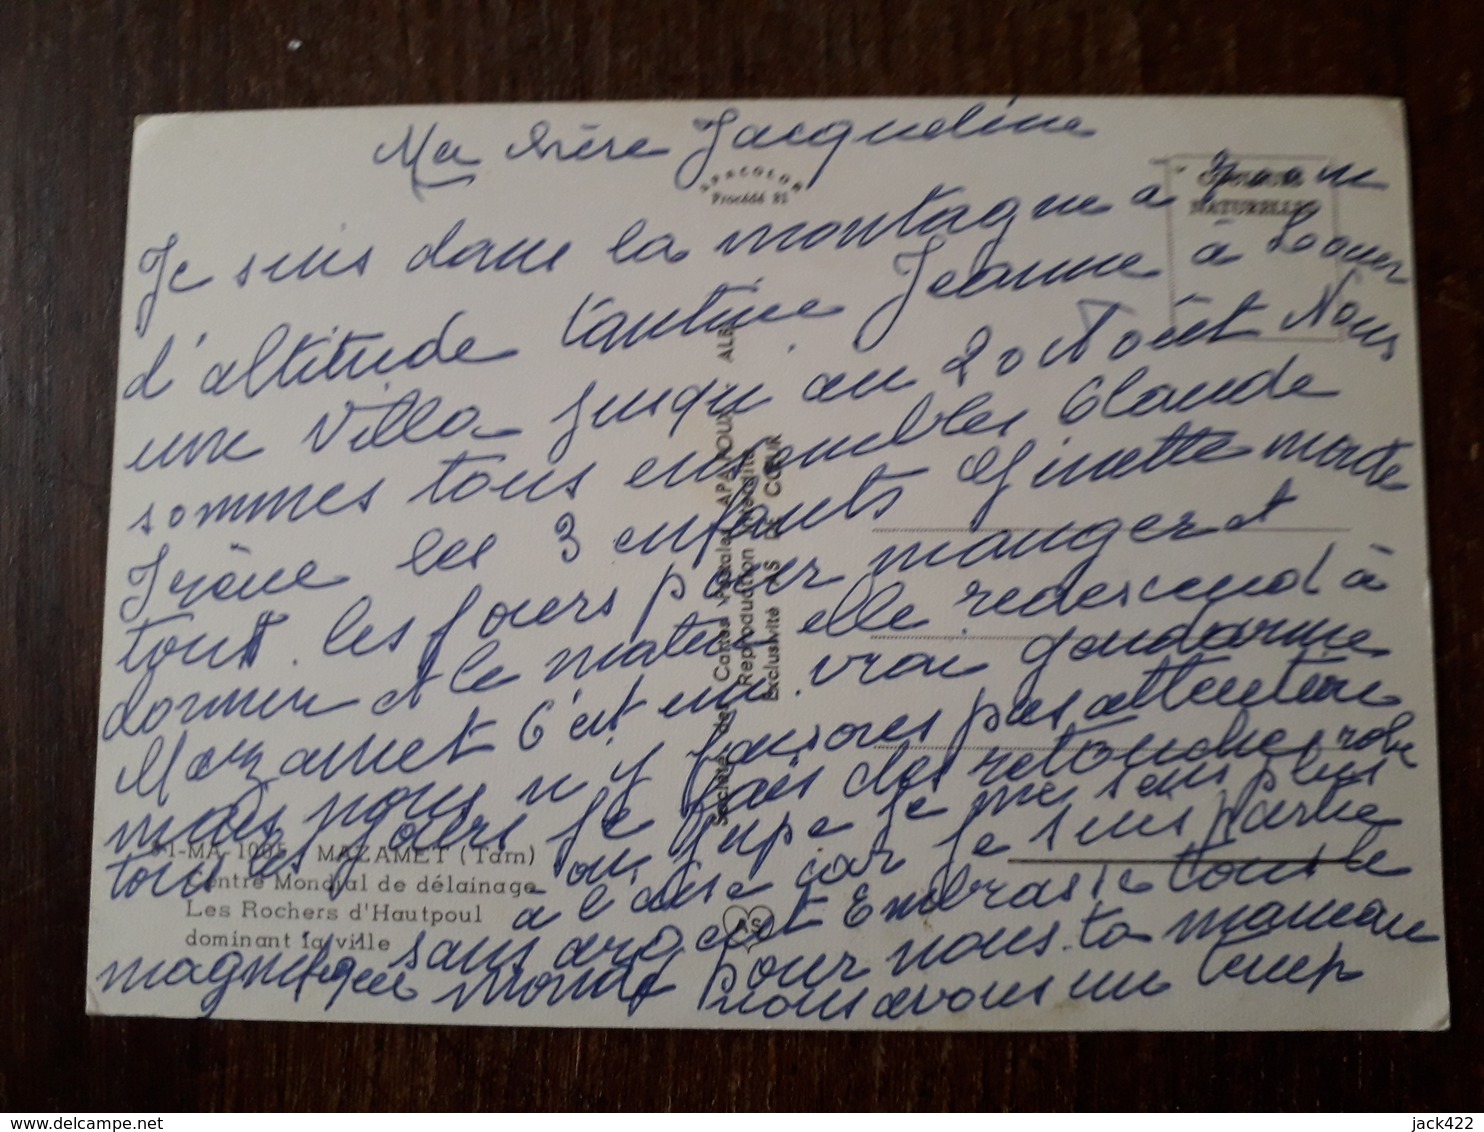 Ma chère Jacqueline
APACOLOR
Procédé 81
COULEURS
NATURELLES
Je suis dans la montagne à 700 m
d'altitude tantine Jeanne à Louer
une Villa jusqu' au 20 Août Nous
sommes tous ensembles Claude
Irène les 3 enfants Ginette monte
tout les jours pour manger et
dormir et le matin elle redescend à
Mazamet C'est un vrai gendarme
mais nous n'y faisons pas attention
tous les jours je fais des retouches robe
ou jupe je me sens plus
à l'aise car je suis partie
sans argent Embrasse tous le
monde pour nous ta maman
nous avons un temp
magnifique
81-MA-1005 MAZAMET (Tarn)
Centre Mondial de délainage
Les Rochers d'Hautpoul
dominant la ville
Société des Cartes Postales APA-POUX - ALBI
Reproduction interdite
Exclusivité "AS DE CŒUR
AS
delcampe.net
jack422